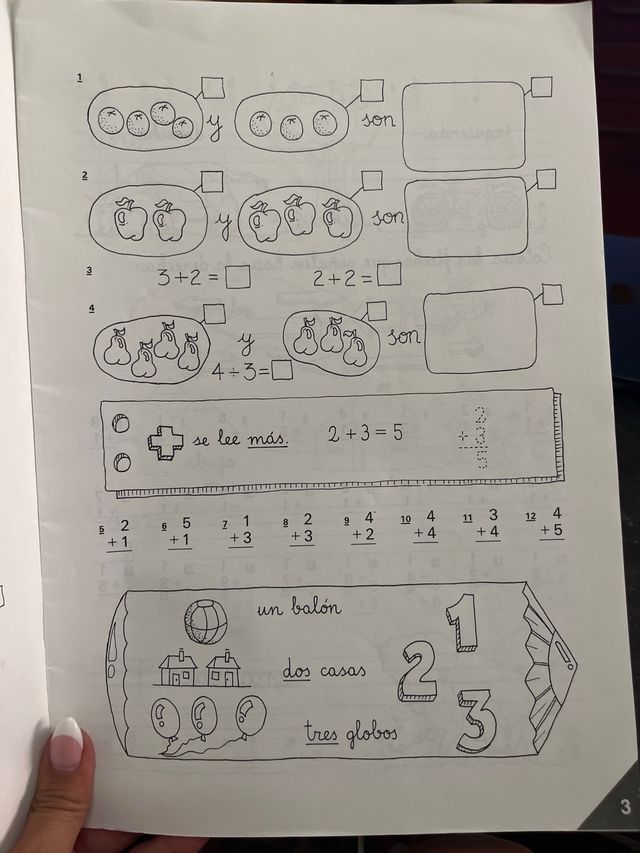 1
y son
2
y son
3 3+2 = 2+2 =
4
y son
4÷3=
se lee más. 2+3=5
2
+3
5
5 6 7 8 9 10 11 12
2 5 1 2 4 4 3 4
+1 +1 +3 +3 +2 +4 +4 +5
un balón 1
dos casas 2
tres globos 3
3